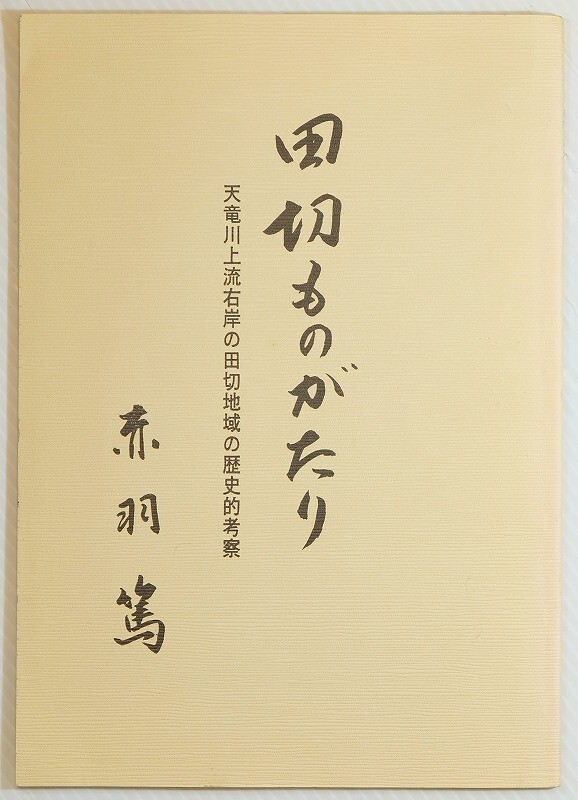 田切ものがたり
天竜川上流右岸の田切地域の歴史的考察
赤羽篤